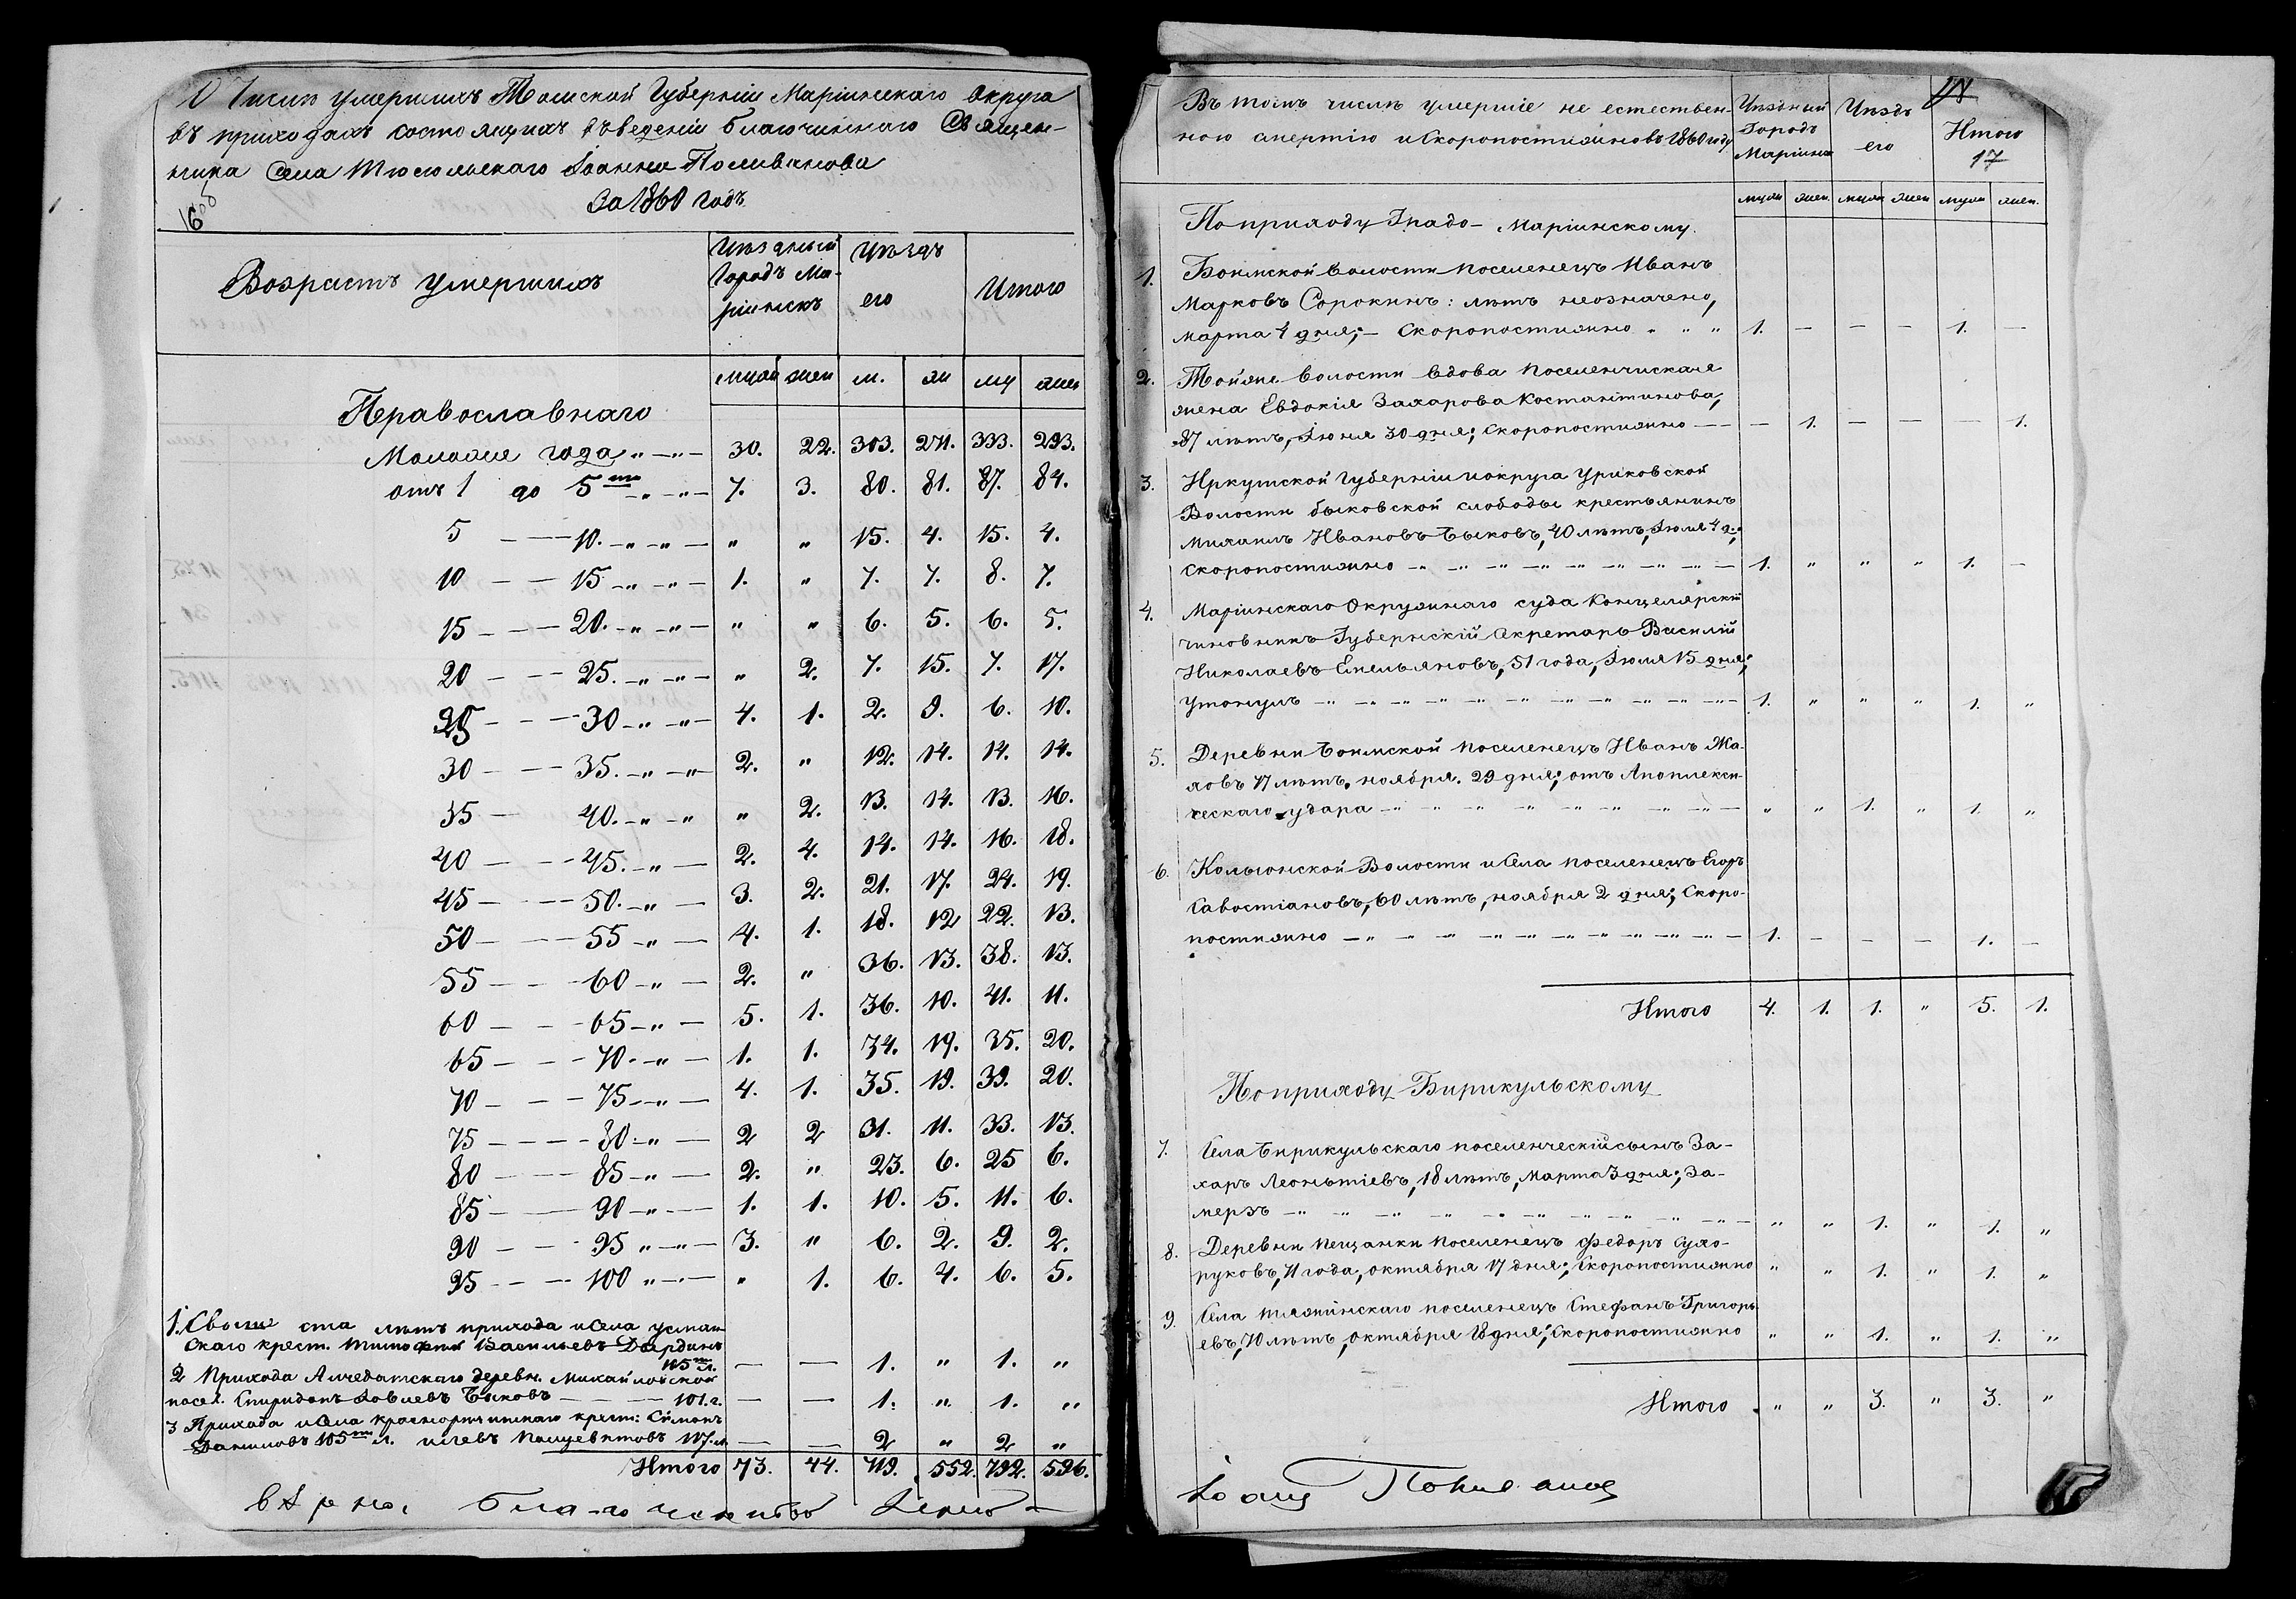 О Числѣ умершихъ Томской Губерніи Маріинскаго Округа
въ приходахъ состоящихъ въ веденіи благочиннаго Священ-
ника Села Тюсюльскаго Іоанна Поливанова
За 1860 годъ.
16
Возрастъ умершихъ | Уѣздный Городъ Ма-ріинскъ | Уѣздъ его | Итого
муж жен м. ж му жен
Православнаго
Моложе года 30. 22. 303. 271. 333. 293.
отъ 1 до 5ти 7. 3. 80. 81. 87. 84.
5 — 10. „ „ 15. 4. 15. 4.
10 — 15 1. „ 7. 7. 8. 7.
15 — 20. „ „ 6. 5. 6. 5.
20 — 25. „ 2. 7. 15. 7. 17.
25 — 30 4. 1. 2. 9. 6. 10.
30 — 35. 2. „ 12. 14. 14. 14.
35 — 40. „ 2. 13. 14. 13. 16.
40 — 45. 2. 4. 14. 14. 16. 18.
45 — 50. 3. 2. 21. 17. 24. 19.
50 — 55 4. 1. 18. 12 22. 13.
55 — 60 2. „ 36. 13. 38. 13.
60 — 65 5. 1. 36. 10. 41. 11.
65 — 70 1. 1. 34. 19. 35. 20.
70 — 75 4. 1. 35. 19. 39. 20.
75 — 80 2 2 31. 11. 33. 13.
80 — 85 2. „ 23. 6. 25 6.
85 — 90 1. 1. 10. 5. 11. 6.
90 — 95 3. „ 6. 2. 9. 2.
95 — 100 „ 1. 6. 4. 6. 5.
1. Свыше ста лѣтъ прихода и Села усман-
скаго крест. Тимофей Васильевъ
115 л. — — 1. „ 1. „
2 Прихода Алчедатскаго деревн. Михайловской
посел. Спиридонъ Быковъ — 101. г. — — 1. „ 1. „
3 Прихода и Села крест: Симонъ
Даниловъ 105ти л. 107. л. — — 2 „ 2 „
Итого 73. 44. 719. 552. 792. 596.
Въ томъ числѣ умершіе не естествен-
ною смертію и Скоропостижно въ 1860 году
Уѣздный Городъ Маріинск | Уѣздъ его | Итого
17
муж жен. муж жен муж жен.
По приходу Градо-Маріинскому.
1. Боимской волости поселенецъ Иванъ
Марковъ Сорокинъ: лѣтъ неозначено,
марта 4 дня; — Скоропостижно „ „ 1. — — — 1. —
2. Той же волости вдова поселенческая
жена Евдокія Захарова Костантинова,
87 лѣтъ, Іюня 30 дня; Скоропостижно — — 1. — — — 1.
3. Иркутской Губерніи и округа Уриковской
Волости быковской слободы крестьянинъ
Михаилъ Ивановъ Быковъ, 40 лѣтъ, Іюля 4 д.;
Скоропостижно 1. „ „ „ 1. —
4. Маріинскаго Окружнаго суда Канцелярскій
чиновникъ Губернскій Секретарь Василій
Николаевъ Емельяновъ, 51 года, Іюля 15 дня;
утонулъ 1. „ „ „ 1. „
5. Деревни Боимской поселенецъ Иванъ Ма-
ховъ 77 лѣтъ, ноября. 29 дня; отъ Апоплекси-
ческаго удара „ „ 1. „ 1. „
6. Кольюнской Волости и Села поселенецъ Егоръ
Савостіановъ, 60 лѣтъ, ноября 2 дня; Скоро-
постижно 1. — — — 1. —
Итого 4. 1. 1. „ 5. 1.
По приходу Бирикульскому
7. Села Бирикульскаго поселенческій сынъ За-
харъ Леонтіевъ, 18 лѣтъ, Марта 3 дня; За-
мерзъ „ „ 1. „ 1. „
8. Деревни Пещанки поселенецъ Федоръ Сухо-
руковъ, 71 года, октября 17 дня; Скоропостижно „ „ 1. „ 1. „
9. Села поселенецъ Стефанъ Григорь
евъ, 70 лѣтъ, октября 18 дня; Скоропостижно „ „ 1. „ 1. „
Итого „ „ 3. „ 3. „